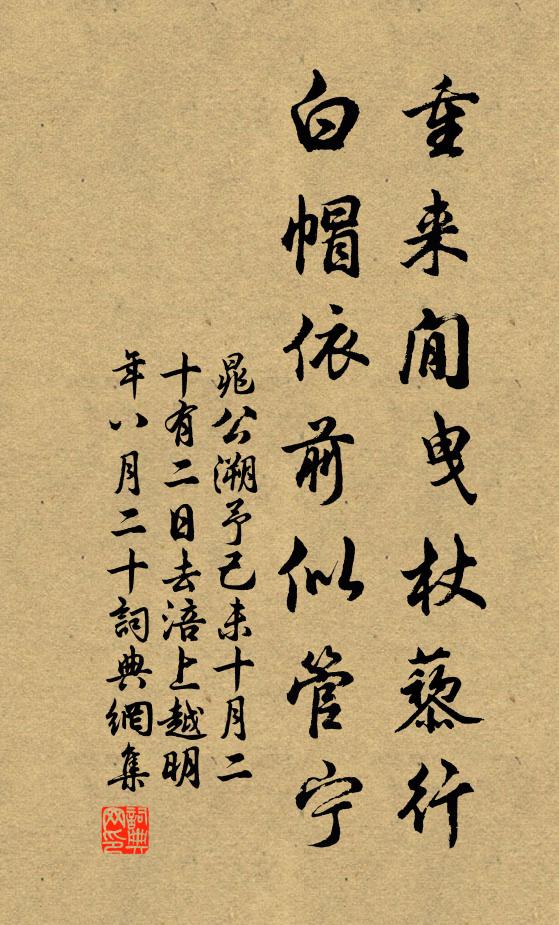 重来閒曳杖藜行
白帽依前似管宁
晁公溯予己未十月二
十有二日去涪上越明
年八月二十詞典網集
詞典
网印